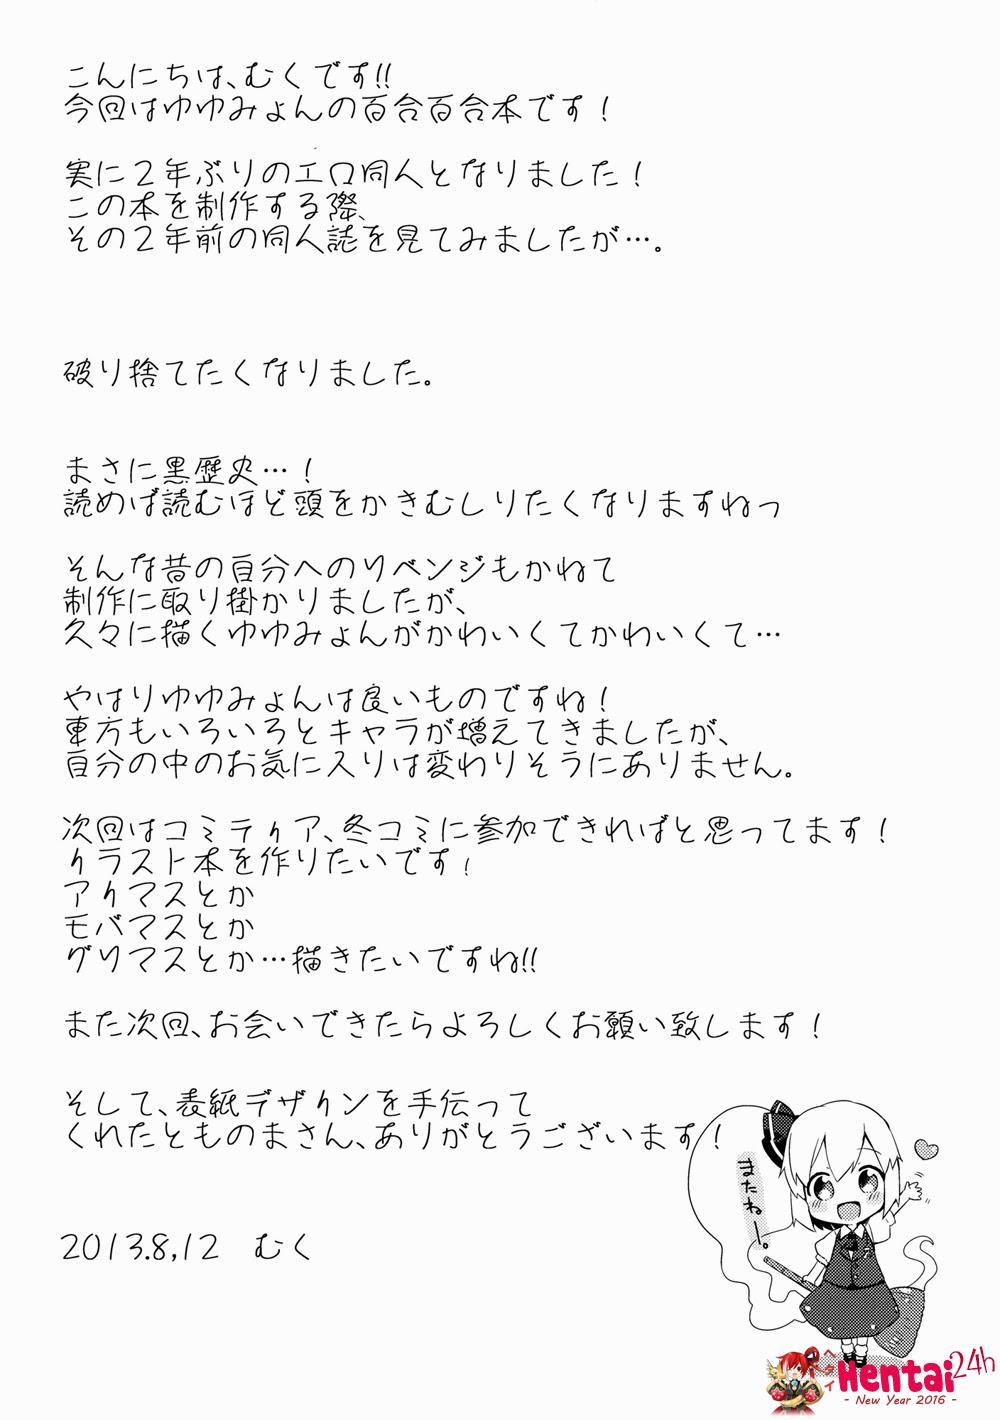 こんにちは、むくです!!
今回はゆゆみょんの百合百合本です！
実に２年ぶりのエロ同人となりました！
この本を制作する際、
その２年前の同人誌を見てみましたが…。
破り捨てたくなりました。
まさに黒歴史…！
読めば読むほど頭をかきむしりたくなりますねっ
そんな昔の自分へのリベンジもかねて
制作に取り掛かりましたが、
久々に描くゆゆみょんがかわいくてかわいくて…
やはりゆゆみょんは良いものですね！
東方もいろいろとキャラが増えてきましたが、
自分の中のお気に入りは変わりそうにありません。
次回はコミティア、冬コミに参加できればと思ってます！
イラスト本を作りたいです！
アイマスとか
モバマスとか
グリマスとか…描きたいですね!!
また次回、お会いできたらよろしくお願い致します！
そして、表紙デザインを手伝って
くれたとものまさん、ありがとうございます！
またねー。
2013.8,12　むく
ヘンタイ
Hentai24h
- New Year 2016 -